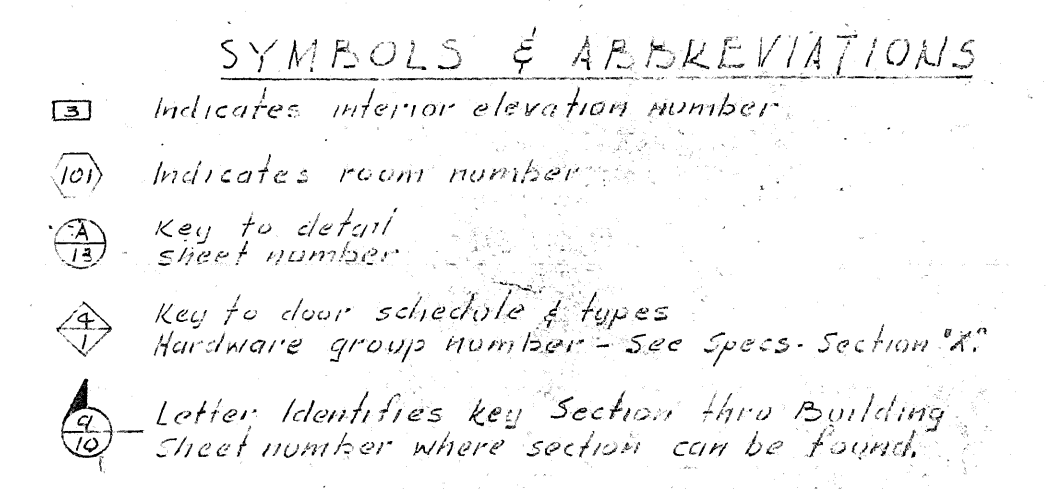 SYMBOLS & ABBREVIATIONS
3 Indicates interior elevation number
101 Indicates room number
A Key to detail
13 sheet number
4 Key to door schedule & types
1 Hardware group number - See Specs. Section "X."
a Letter Identifies key Section thru Building
10 Sheet number where section can be found.